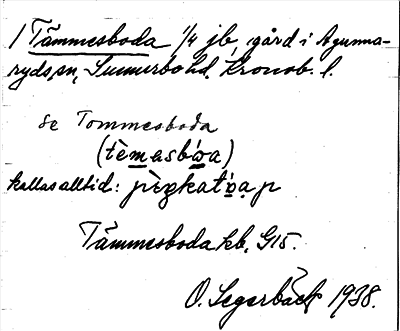 1 Tämmesboda 1/4 jb, gård i Agunna-
ryds sn, Sunnerbo hd, Kronob. l.
se Tommesboda
(tèmasbóa)
kallas alltid: pèpkatóap
Tämmesboda kb, G15.
O. Segerbäck 1938.